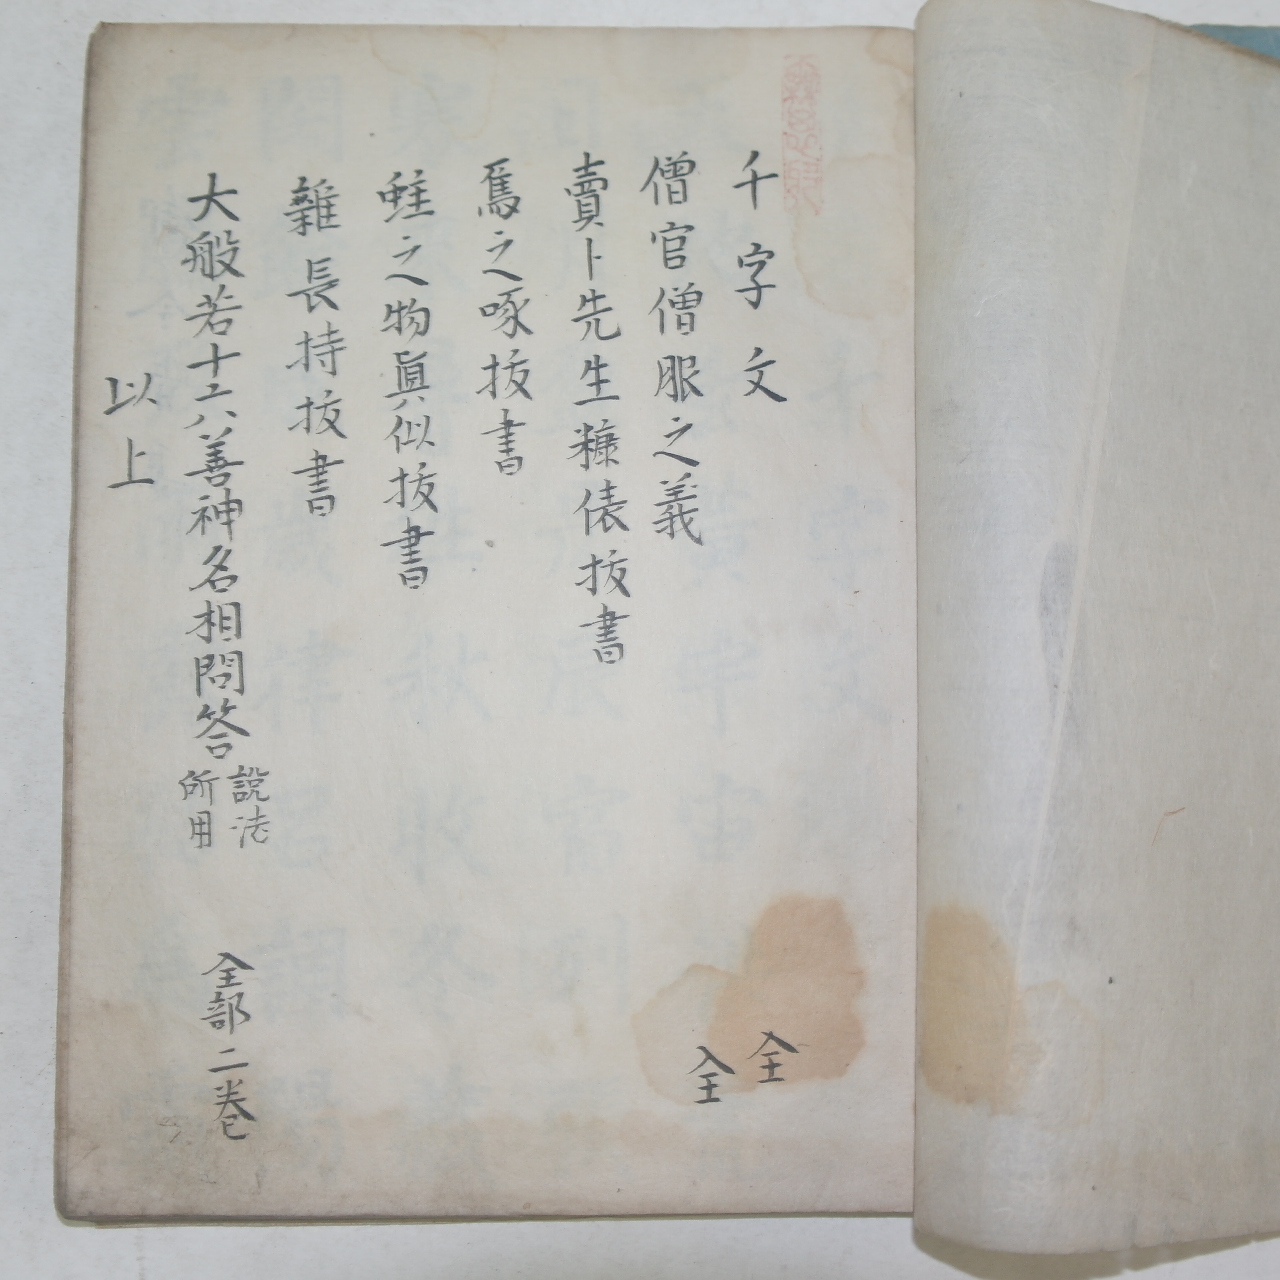 千字文 全
僧官僧服之義 全
賣卜先生糠俵抜書
鴈之啄抜書
蛙之物眞似抜書
雜長持抜書
大般若十六八善神名相問答 説法所用 全部二巻
以上